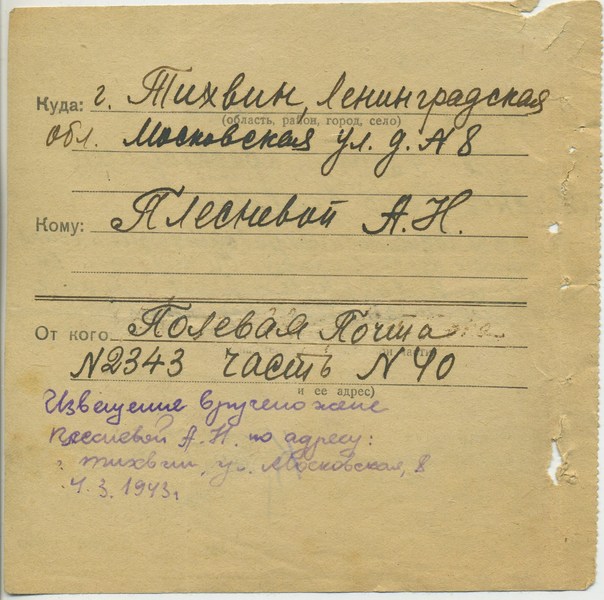 Куда: г. Тихвин, Ленинградская
(область, район, город, село)
обл. Московская ул. д. № 8
Кому: Плесневой А.Н.
От кого Полевая Почта
№2343 часть № 40
и ее адрес)
Извещение вручено жене
Плесневой А.Н. по адресу:
г. Тихвин, ул. Московская, 8
4.3.1943г